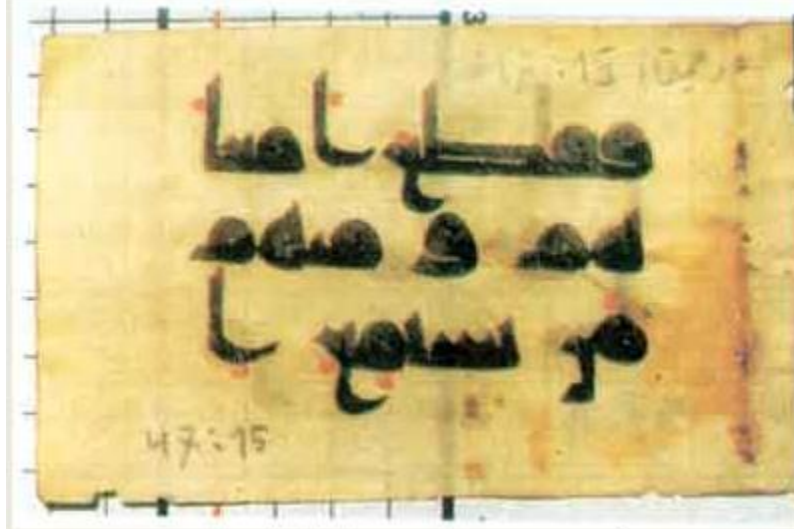 3
فقطع ا معا
هم و منهم
من يستمع ا
47:15